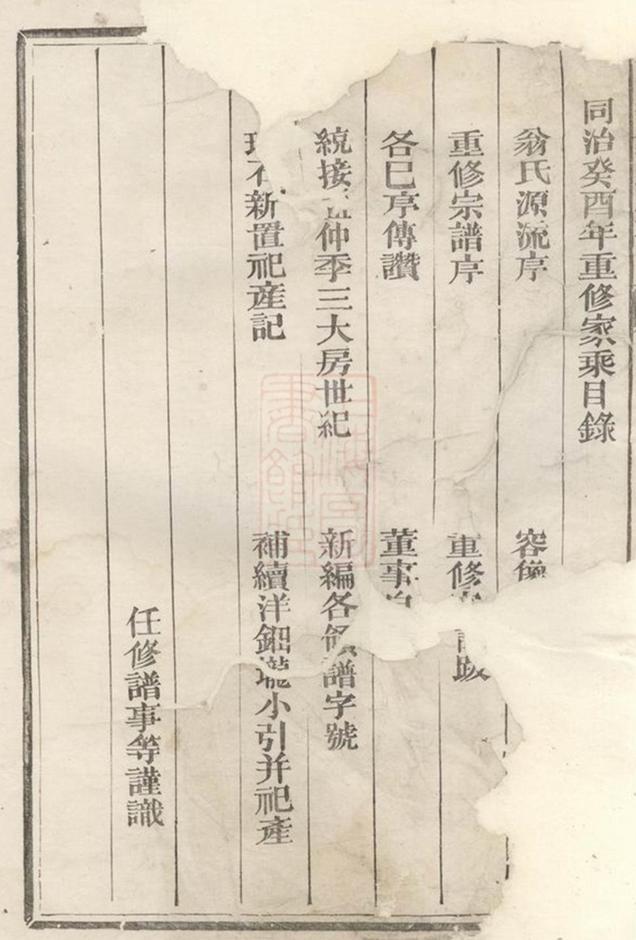 同治癸酉年重修家乘目錄
翁氏源流序 容像
重修宗譜序 重修 譜跋
各巳序傳讚 董事
統接 仲季三大房世紀 新編各領譜字號
新置祀產記 補續洋鈿壠小引并祀產
任修譜事等謹識